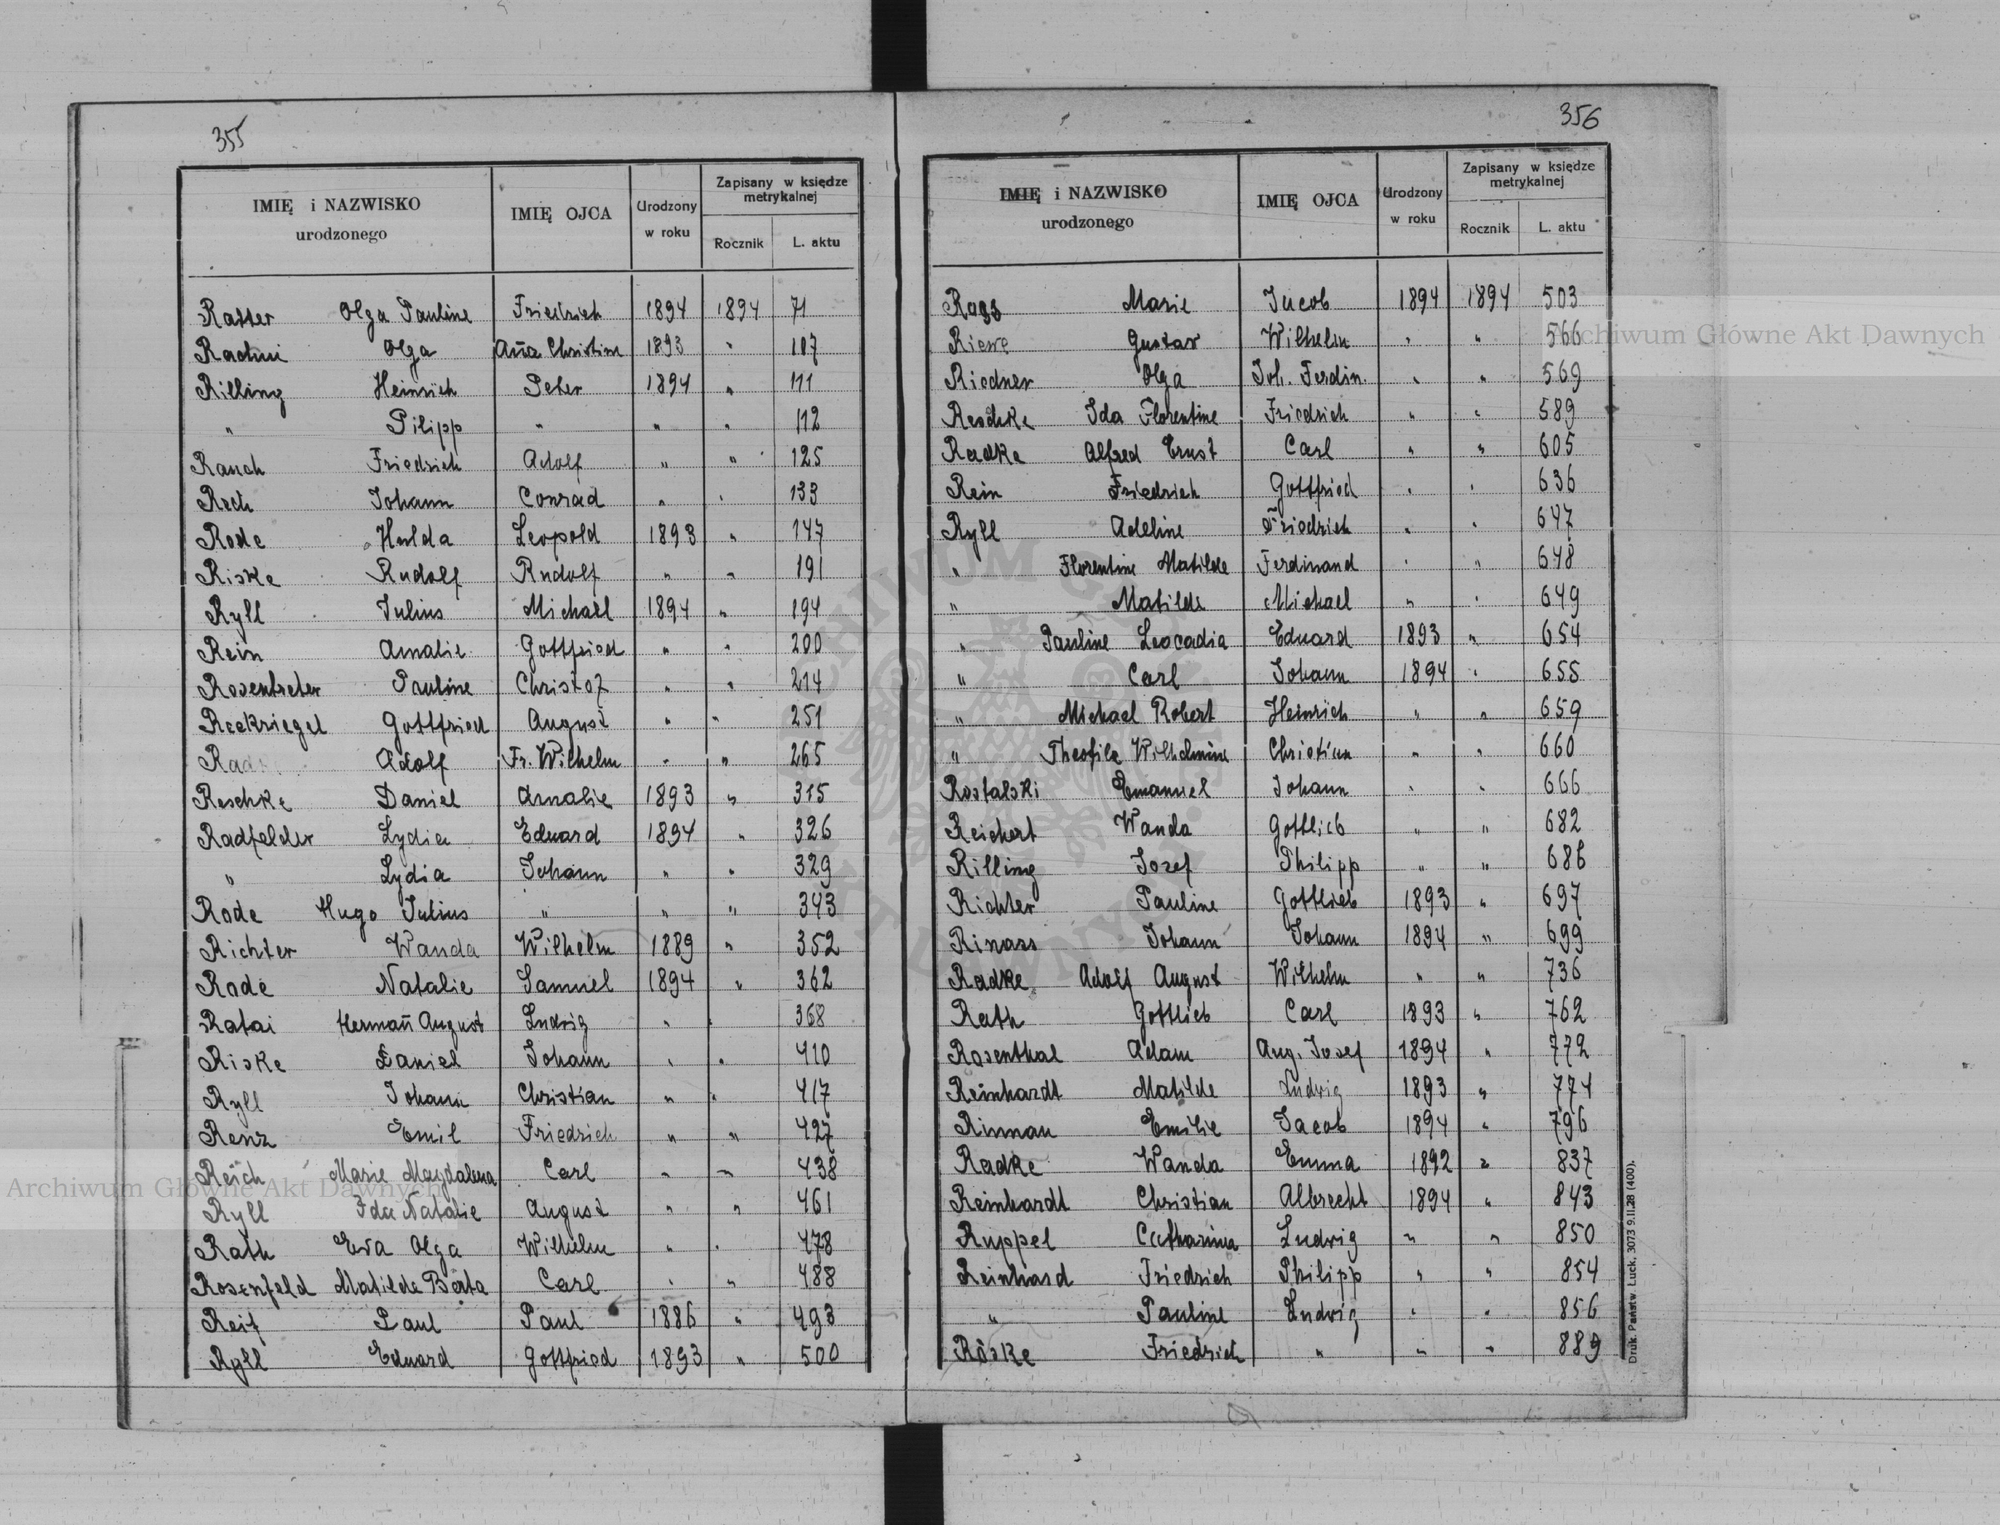 355
IMIĘ i NAZWISKO urodzonego IMIĘ OJCA Urodzony w roku Zapisany w księdze metrykalnej Rocznik L. aktu
Ratter Olga Pauline Friedrich 1894 1894 71
Rachui Olga Aña Christine 1893 " 107
Rilling Heinrich Peter 1894 " 111
" Pilipp " " " 112
Rauch Friedrich Adolf " " 125
Rech Johann Conrad " " 133
Rode Hulda Leopold 1893 " 147
Riske Rudolf Rudolf " " 191
Ryll Julius Michael 1894 " 194
Rein Amalie Gottfried " " 200
Rosentreter Pauline Christof " " 214
Reekriegel Gottfried August " " 251
Adolf Fr. Wilhelm " " 265
Reschke Daniel Amalie 1893 " 315
Radfelder Lydia Eduard 1894 " 326
" Lydia Johann " " 329
Rode Hugo Julius " " " 343
Richter Wanda Wilhelm 1889 " 352
Rode Natalie Samuel 1894 " 362
Ratai Hermañ August Ludwig " " 368
Riske Daniel Johann " " 410
Ryll Johann Christian " " 417
Renz Emil Friedrich " " 427
Reich Marie Magdalena Carl " " 438
Ryll Ida Natalie August " " 461
Rath Eva Olga Wilhelm " " 478
Rosenfeld Matilde Berta Carl " " 488
Reif Paul Paul 1886 " 493
Ryll Eduard Gottfried 1893 " 500
356
IMIĘ i NAZWISKO urodzonego IMIĘ OJCA Urodzony w roku Zapisany w księdze metrykalnej Rocznik L. aktu
Marie Jacob 1894 1894 503
Riewe Gustav Wilhelm " " 566
Riedner Olga Joh. Ferdin. " " 569
Reschke Ida Florentine Friedrich " " 589
Radke Alfred Ernst Carl " " 605
Rein Friedrich Gottfried " " 636
Ryll Adeline Friedrich " " 647
" Florentine Matilde Ferdinand " " 648
" Matilde Michael " " 649
" Pauline Leocadia Eduard 1893 " 654
" Carl Johann 1894 " 655
" Michael Robert Heinrich " " 659
" Theofila Wilhelmine Christian " " 660
Rostalski Emanuel Johann " " 666
Reichert Wanda Gottlieb " " 682
Rilling Josef Philipp " " 686
Richter Pauline Gottlieb 1893 " 697
Rinass Johann Johann 1894 " 699
Radke Adolf August Wilhelm " " 736
Rath Gottlieb Carl 1893 " 762
Rosenthal Adam Aug. Josef 1894 " 772
Reinhardt Matilde Ludwig 1893 " 774
Rinman Emilie Jacob 1894 " 796
Radke Wanda Emma 1892 " 837
Reinhardt Christian Albrecht 1894 " 843
Ruppel Catharina Ludwig " " 850
Reinhard Friedrich Philipp " " 854
" Pauline Ludwig " " 856
Röske Friedrich " " " 889
Druk. Państw. Łuck. 3073 9.II.28 (400).
Archiwum Główne Akt Dawnych
Archiwum Główne Akt Dawnych